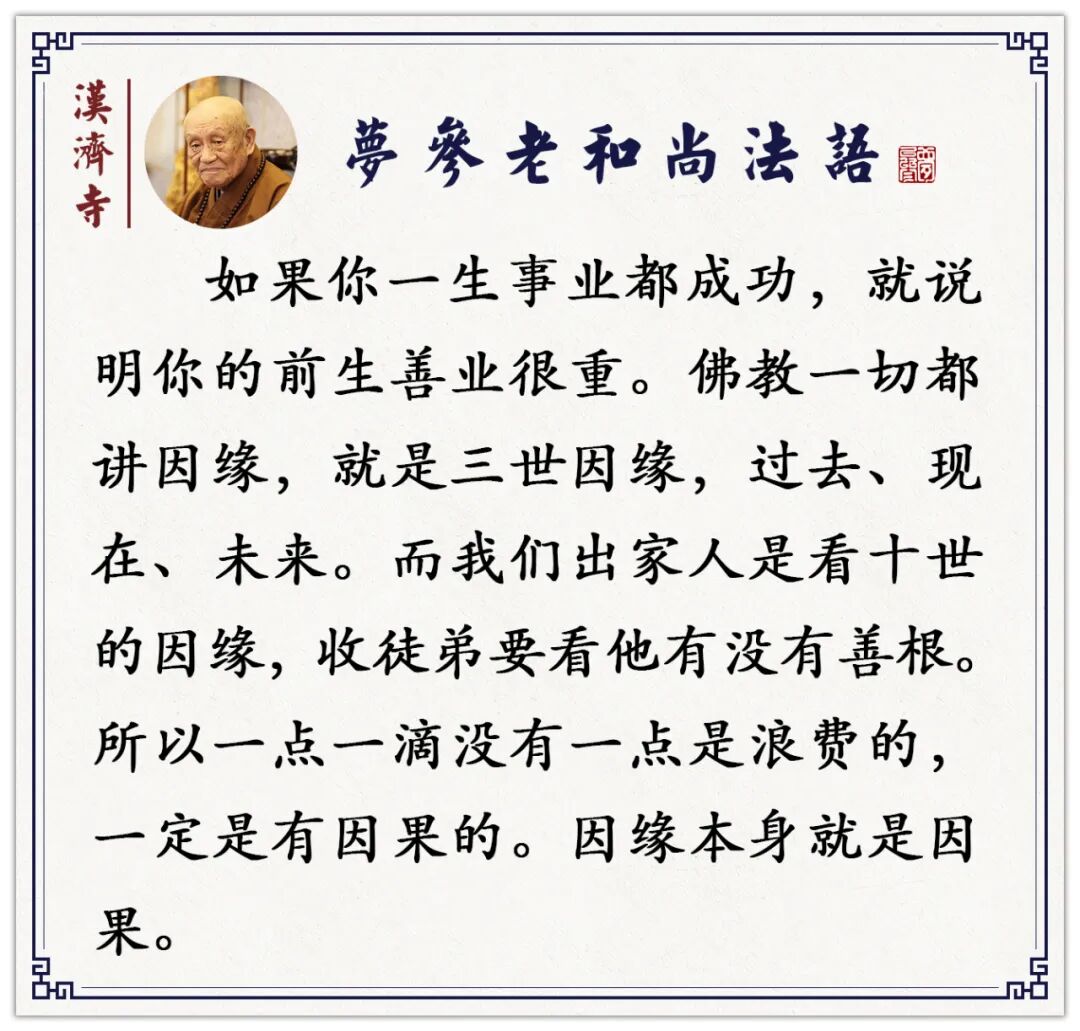 漢濟寺
夢參老和尚法語
如果你一生事业都成功，就说
明你的前生善业很重。佛教一切都
讲因缘，就是三世因缘，过去、现
在、未来。而我们出家人是看十世
的因缘，收徒弟要看他有没有善根。
所以一点一滴没有一点是浪费的，
一定是有因果的。因缘本身就是因
果。